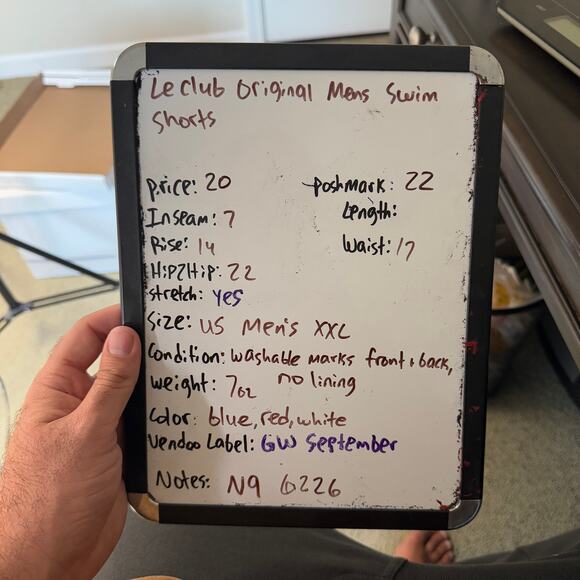 Le club Original Mens Swim
Shorts
price: 20
poshmark: 22
Inseam: 7
Length:
Rise: 14
Waist: 17
Hip2Hip: 22
stretch: yes
Size: US Men's XXL
Condition: washable marks front + back,
no lining
weight: 7oz
Color: blue, red, white
Vendoo Label: GW September
Notes: N9 6226